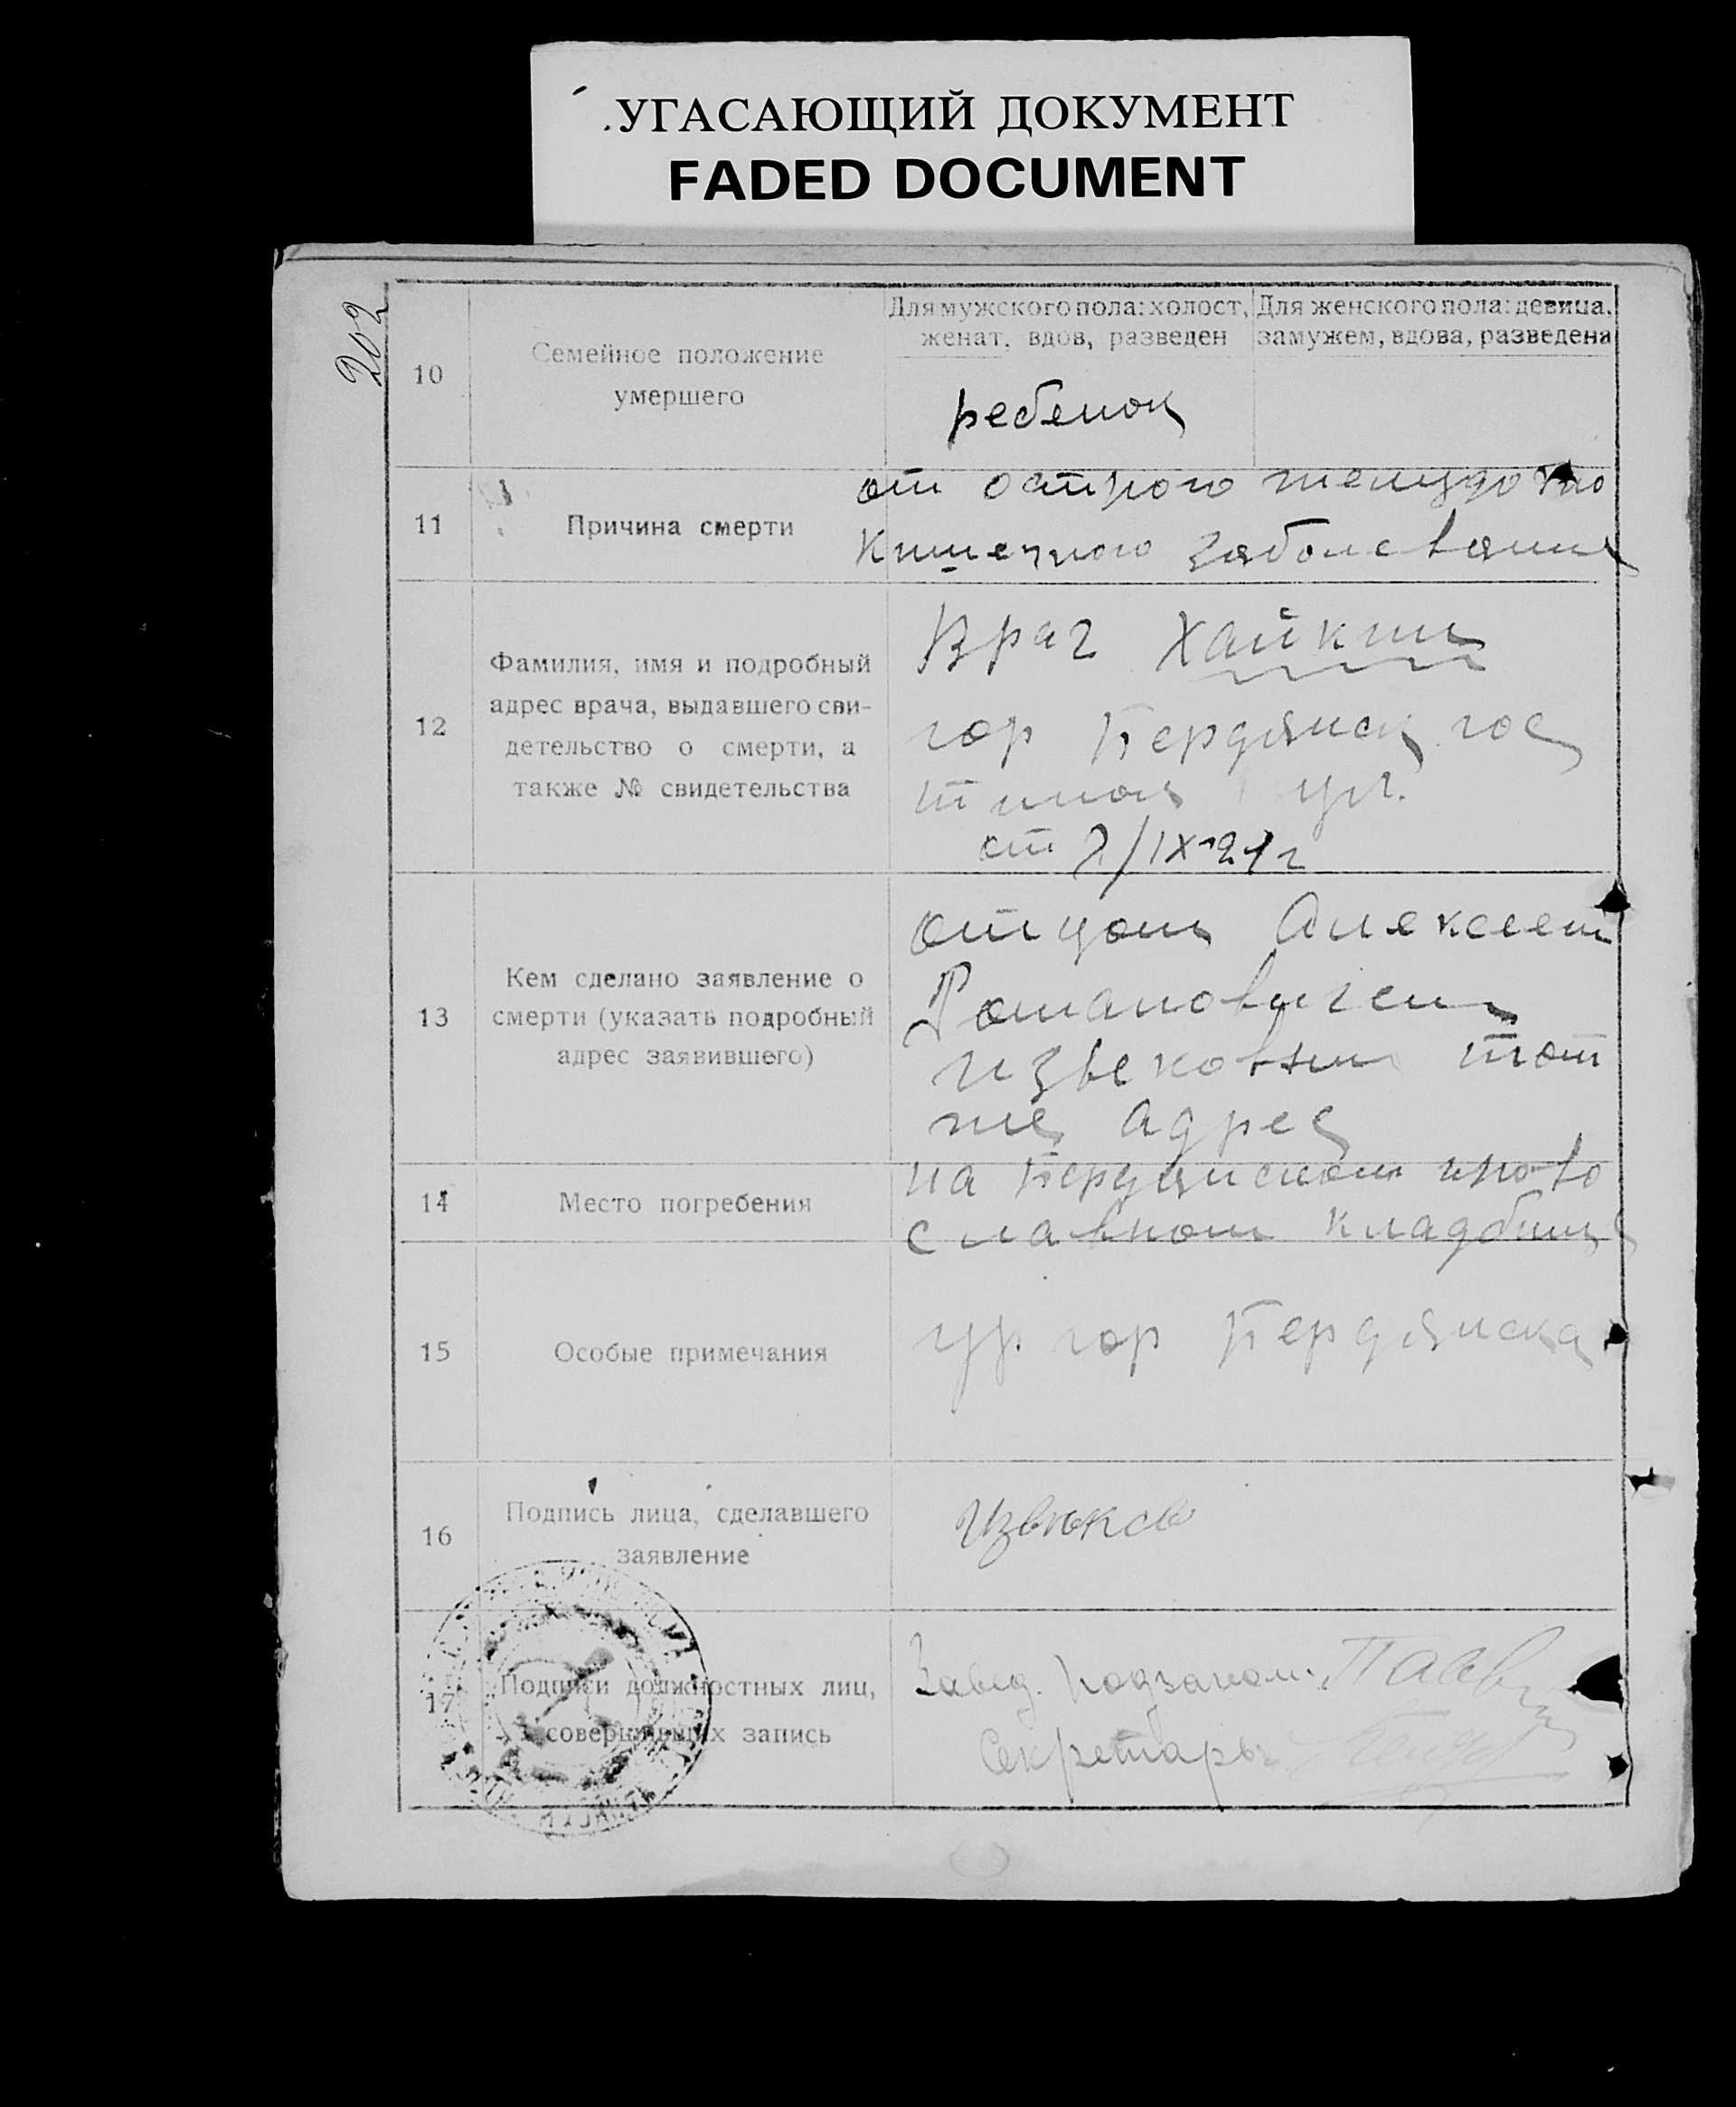 УГАСАЮЩИЙ ДОКУМЕНТ
FADED DOCUMENT
202
10
Семейное положение
умершего
Для мужского пола: холост,
женат, вдов, разведен
Для женского пола: девица,
замужем, вдова, разведена
ребенок
11
Причина смерти
от острого желудочно
кишечного заболевания
12
Фамилия, имя и подробный
адрес врача, выдавшего сви-
детельство о смерти, а
также № свидетельства
Врач Хайкин
гор Бердянск гос
ул.
от 2/IX-21 г
13
Кем сделано заявление о
смерти (указать подробный
адрес заявившего)
отцом Алексеем
Романовичем
Извековым тот
же адрес
14
Место погребения
на Бердянском право
славном кладбище
15
Особые примечания
гр. гор Бердянска
16
Подпись лица, сделавшего
заявление
Извеков
17
Подписи должностных лиц,
совершивших запись
Завед. подзагсом
Секретарь